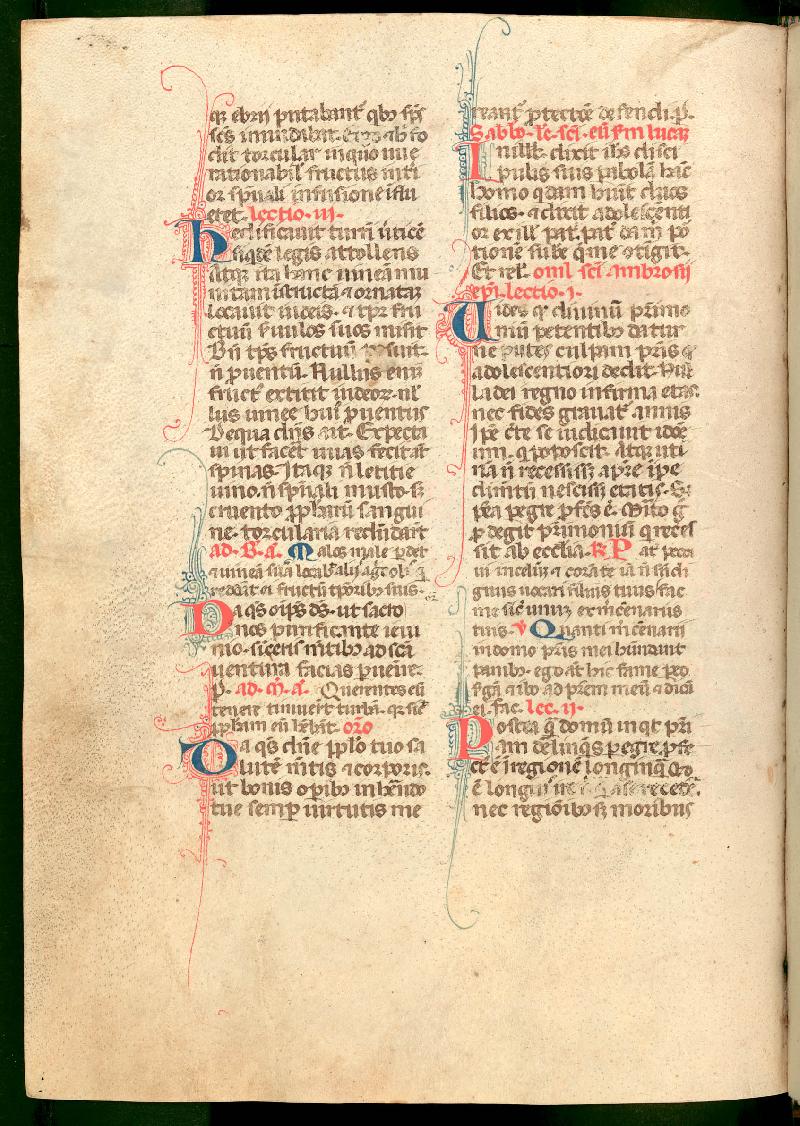 q̃ ebrii putabant̃ q̃bꝰ sp̃s
sc̃s inundabat. Ergo ab fo
dit torcular in quo uue
rationabil̃ fructus inti
or spũali infusione influ
eret. lectio .iii.
hedificauit turrĩ ũticẽ
sĩqdẽ legis attollens
Atq̃ ita hanc uineam mu
nitam ĩstructã ⁊ ornatã
locauit iudeis. ⁊ tp̃r fru
ctuũ ẜuulos suos misit
Bñ tp̃s fructuũ posuit.
ñ ꝓuentũ. Nullus enĩ
fruct᷒ extitit iudeoꝝ. nl̃
lus uinee huiꝰ ꝓuentus
De qua dñs ait. Expecta
ui ut facet̃ uuas fecit aũt
spinas. Itaq̃ ñ letitie
uino. ñ spũali musto. sꝫ
cruento ꝓph̃arũ sangui
ne. torcularia redũdarũt
ad .B. a. Malos male ꝑdet
⁊ uineã suã locab̃ alijs agcol̃
reddãt ei fructũ tp̃oribꝰ suis.
Da q̃s oĩps ds̃. ut sacro
nos purificante ieiu
nio. sĩceris mtĩbꝰ ad sc̃a
uentura facias ꝑuenire.
P̃. ad .M̃. a. Querentes eũ
tenere timuerũt turbã. q̃ sic̃
ꝓph̃am eũ hẽbãt. or̃o
Da q̃s dñe ppl̃o tuo sa
lutẽ mtĩs ⁊ corporis.
ut bonis opibꝰ inhẽndo
tue semꝑ uirtutis me
reant̃ ꝓtectõe defendi. ꝑ.
Sabbo. le. sc̃i. eũ. ẜm lucaꝫ
In illo. dixit ih̃s disci
pulis suis ꝑabolã hãc
homo qdam huit duos
filios. ⁊ dixit adolescenti
or ex ill̃. pat̃. pat̃ da m̃ por
tionẽ sube q̃ me ↄtigit.
Et rel̃. oml̃. sc̃i Ambrosij
ep̃i. lectio .i.
Uides q̃ diuinũ pr̃imo
niũ petentibꝰ datur
ne putes culpam pr̃is q̃
adolescentiori dedit. Nul
la dei regno infirma etas.
nec fides grauat̃ annis
Ipe c̃te se iudicauit idoe
um. q̃ poposcit. Atq̃ uti
nã ñ recessissꝫ a pr̃e ĩpe
dimtũ nescissꝫ etatis. Sꝫ
pea pegre ꝓfes ẽ. Mito g̃
ꝑdegit pr̃imoniũ q̃ reces
sit ab ecclia. R̃ Pat̃ peca
ui in celũ ⁊ corã te iã ñ sũ di
gnus uocari filius tuus fac
me sic̃ unuꝫ ex mc̃enariis
tuis. v̾ Quanti mc̃enarii
in domo pr̃is mei hũndant
panibꝰ. ego aũt hic fame peo.
sg̃ã ⁊ ibo ad pr̃em meũ ⁊ dicã
ei. fac. lec. ii.
Postea q̃ domũ inqt pr̃i
am delinq̃s pegre ꝓfe
ct ẽ ĩ regionẽ longinq̃. Qd̃
ẽ longinquius q̃ a se recede.
nec regiõibꝰ sꝫ moribus